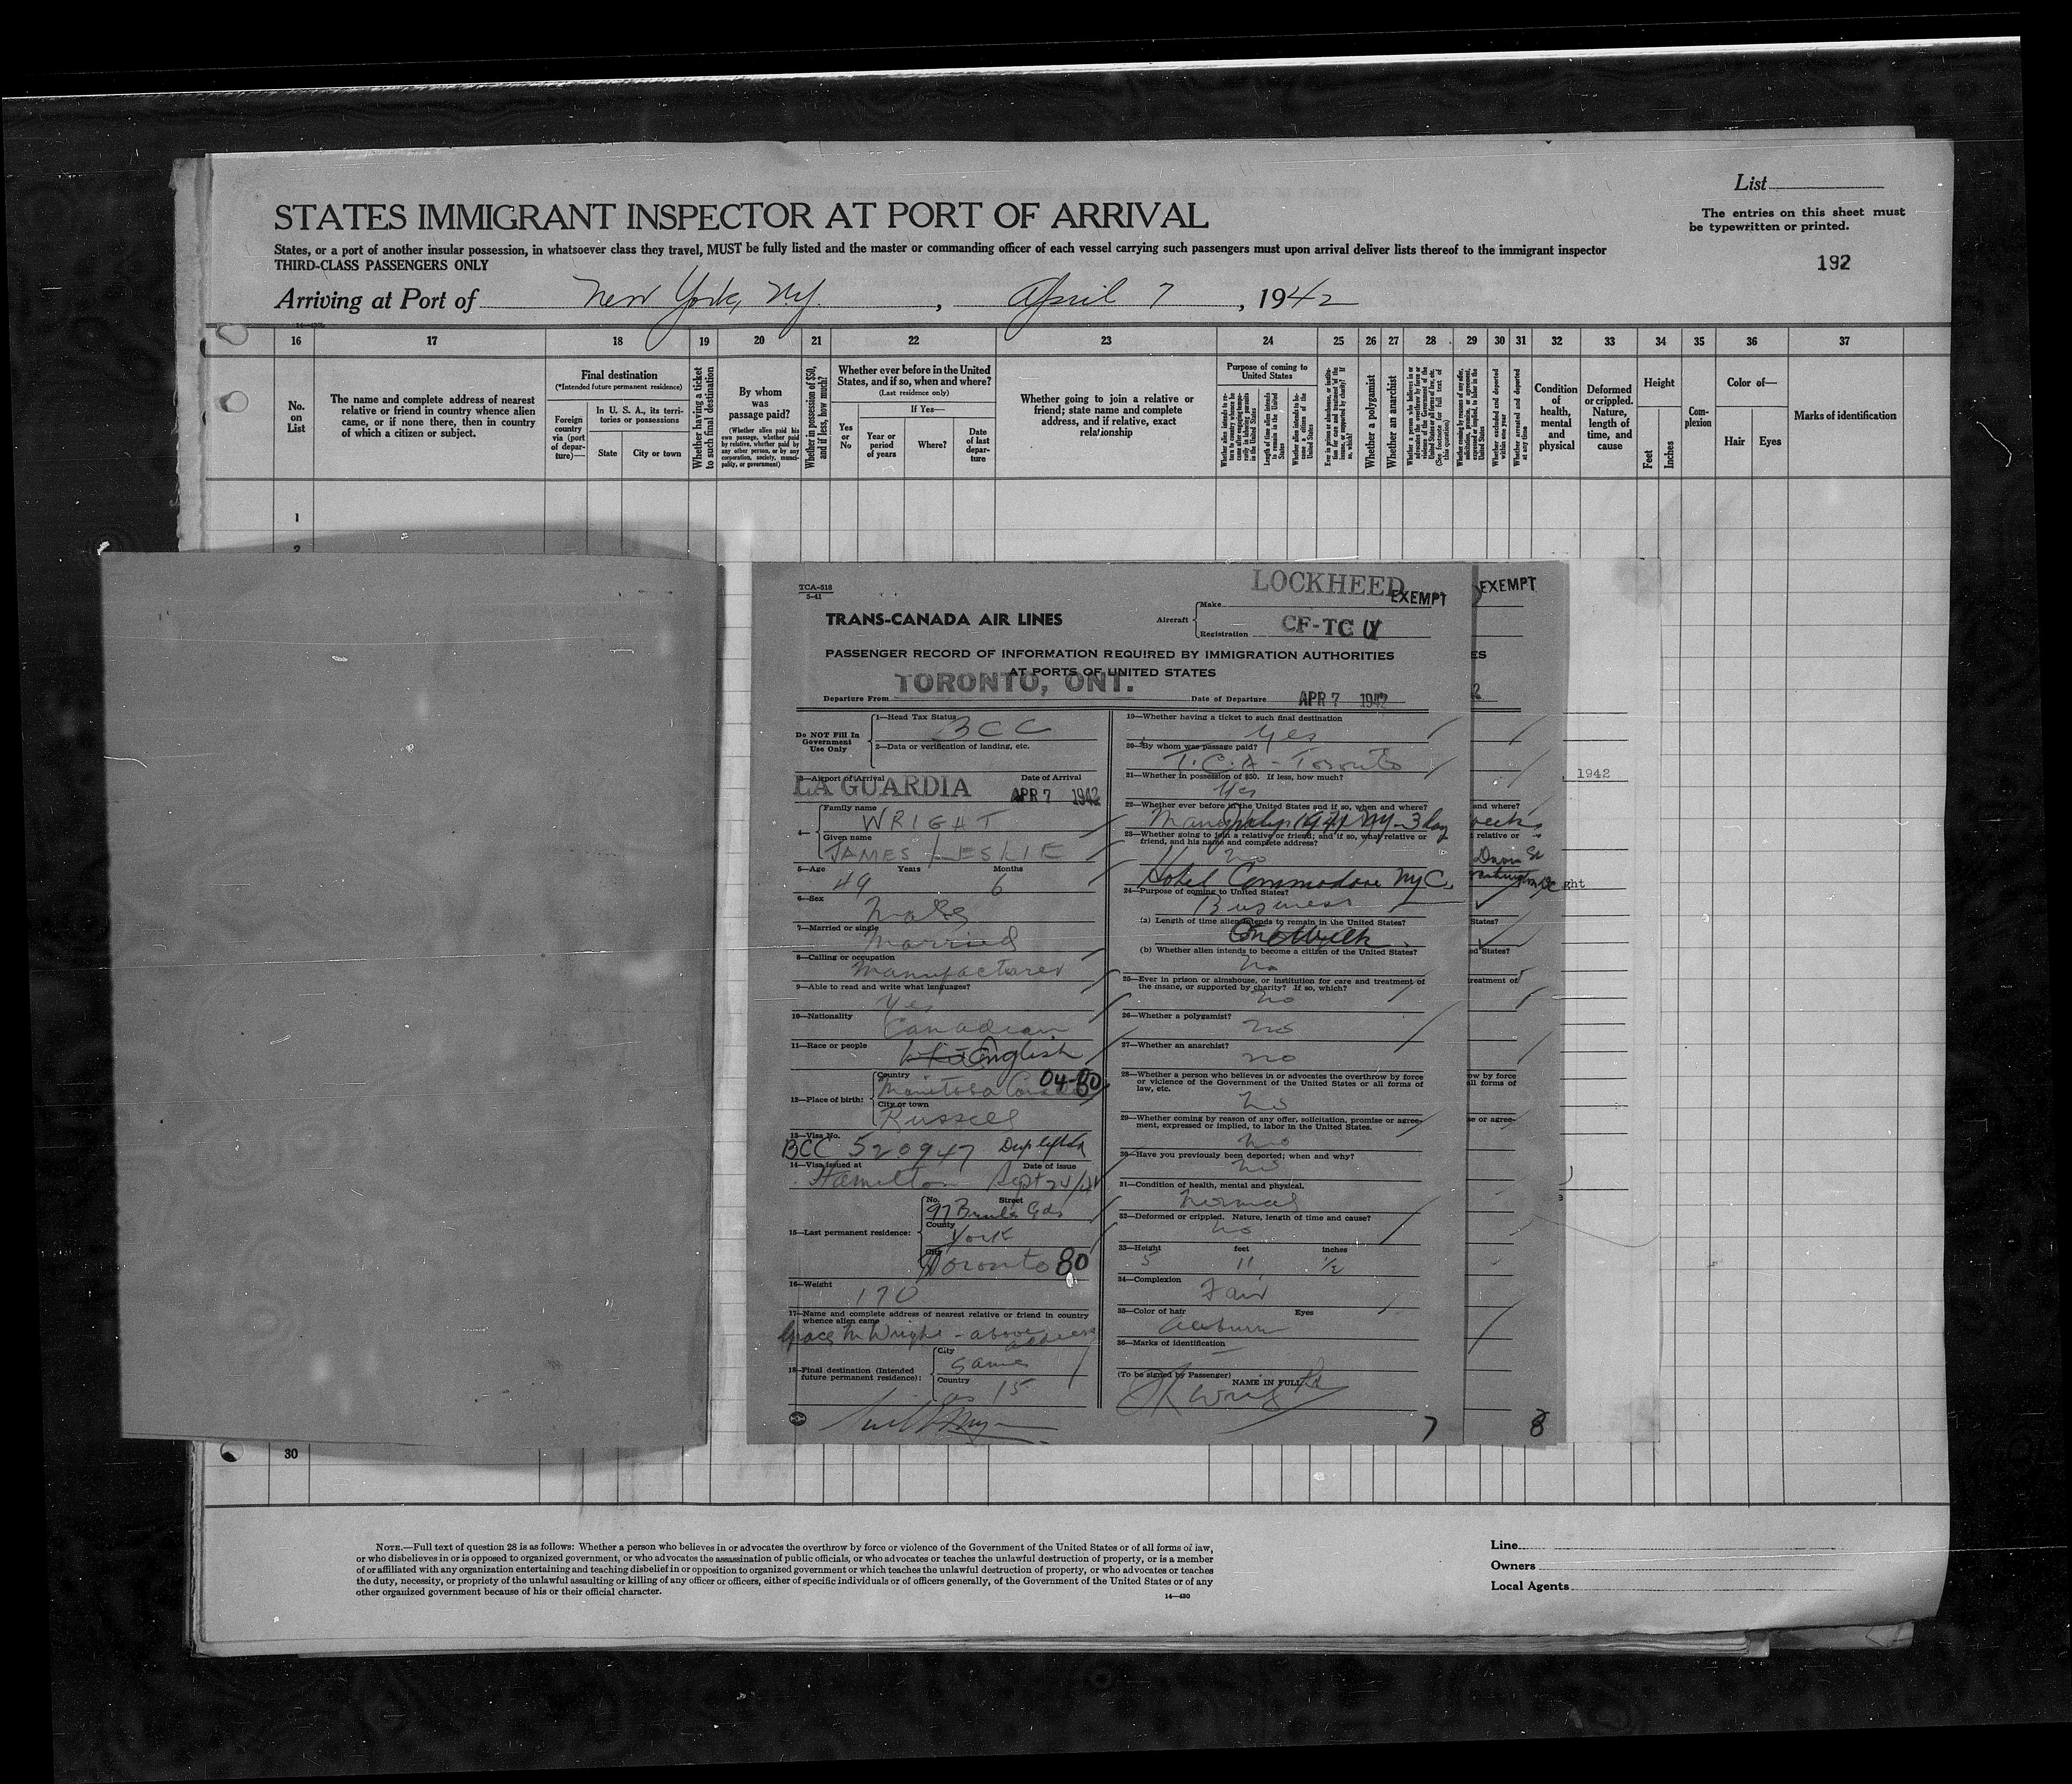 List
STATES IMMIGRANT INSPECTOR AT PORT OF ARRIVAL
The entries on this sheet must
be typewritten or printed.
States, or a port of another insular possession, in whatsoever class they travel, MUST be fully listed and the master or commanding officer of each vessel carrying such passengers must upon arrival deliver lists thereof to the immigrant inspector
THIRD-CLASS PASSENGERS ONLY
192
Arriving at Port of New York, N.Y. , April 7 , 1942
16 17 18 19 20 21 22 23 24 25 26 27 28 29 30 31 32 33 34 35 36 37
No. on List
The name and complete address of nearest relative or friend in country whence alien came, or if none there, then in country of which a citizen or subject.
Final destination
(*Intended future permanent residence)
Foreign country via (port of departure)—
In U. S. A., its territories or possessions
State
City or town
Whether having a ticket to such final destination
By whom was passage paid?
(Whether alien paid his own passage, whether paid by relative, whether paid by any other person, or by any corporation, society, municipality, or government)
Whether in possession of $50, and if less, how much?
Whether ever before in the United States, and if so, when and where?
(Last residence only)
Yes or No
If Yes—
Year or period of years
Where?
Date of last departure
Whether going to join a relative or friend; state name and complete address, and if relative, exact relationship
Purpose of coming to United States
Length of time alien intends to remain in the United States
Whether a polygamist
Whether an anarchist
Whether excluded and deported within one year
Whether arrested and deported at any time
Condition of health, mental and physical
Deformed or crippled. Nature, length of time, and cause
Height
Feet
Inches
Complexion
Color of—
Hair
Eyes
Marks of identification
1
2
TCA-518
5-41
LOCKHEED
EXEMPT
EXEMPT
TRANS-CANADA AIR LINES
Aircraft
Make
Registration CF-TC
PASSENGER RECORD OF INFORMATION REQUIRED BY IMMIGRATION AUTHORITIES
AT PORTS OF UNITED STATES
Departure From TORONTO, ONT.
Date of Departure APR 7 1942
Do NOT Fill In
Government
Use Only
1—Head Tax Status
BCC
2—Data or verification of landing, etc.
3—Airport of Arrival Date of Arrival
LA GUARDIA APR 7 1942
4—
Family name
WRIGHT
Given name
JAMES LESLIE
5—Age Years Months
49 6
6—Sex
Male
7—Married or single
Married
8—Calling or occupation
Manufacturer
9—Able to read and write what languages?
Yes
10—Nationality
Canadian
11—Race or people
English
12—Place of birth:
Country
Manitoba Canada
City or town
Russell
13—Visa No.
BCC 520947
14—Visa issued at Date of issue
Hamilton Sept 24/
15—Last permanent residence:
No. Street
97 Gds
County
York
City
Toronto 80
16—Weight
170
17—Name and complete address of nearest relative or friend in country
whence alien came
Grace M Wright - above address
18—Final destination (Intended
future permanent residence):
City
Same
Country
as 15
19—Whether having a ticket to such final destination
Yes
20—By whom was passage paid?
T.C.A - Toronto
21—Whether in possession of $50. If less, how much?
Yes
22—Whether ever before in the United States and if so, when and where?
Many 1941 NY - 3 day
23—Whether going to join a relative or friend; and if so, what relative or
friend, and his name and complete address?
No
Hotel Commodore NYC.
24—Purpose of coming to United States?
Business
(a) Length of time alien intends to remain in the United States?
One Week
(b) Whether alien intends to become a citizen of the United States?
No
25—Ever in prison or almshouse, or institution for care and treatment of
the insane, or supported by charity? If so, which?
No
26—Whether a polygamist?
No
27—Whether an anarchist?
no
28—Whether a person who believes in or advocates the overthrow by force
or violence of the Government of the United States or all forms of
law, etc.
No
29—Whether coming by reason of any offer, solicitation, promise or agree-
ment, expressed or implied, to labor in the United States.
No
30—Have you previously been deported; when and why?
No
31—Condition of health, mental and physical.
Normal
32—Deformed or crippled. Nature, length of time and cause?
No
33—Height feet inches
5 11 ½
34—Complexion
Fair
35—Color of hair Eyes
Auburn
36—Marks of identification
(To be signed by Passenger)
NAME IN FULL
7
8
1942
ght
30
NOTE.—Full text of question 28 is as follows: Whether a person who believes in or advocates the overthrow by force or violence of the Government of the United States or of all forms of law,
or who disbelieves in or is opposed to organized government, or who advocates the assassination of public officials, or who advocates or teaches the unlawful destruction of property, or is a member
of or affiliated with any organization entertaining and teaching disbelief in or opposition to organized government or which teaches the unlawful destruction of property, or who advocates or teaches
the duty, necessity, or propriety of the unlawful assaulting or killing of any officer or officers, either of specific individuals or of officers generally, of the Government of the United States or of any
other organized government because of his or their official character.
14—430
Line
Owners
Local Agents